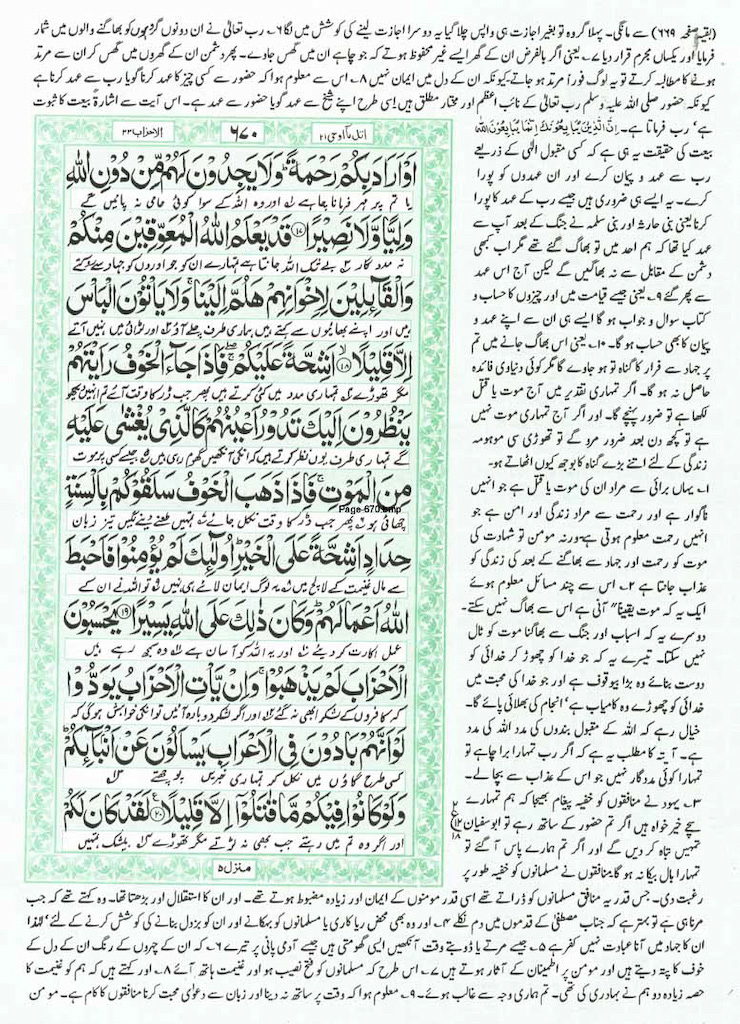 (بقیہ صفحہ ۶۶۹) سے مانگی۔ پہلا گروہ تو بغیر اجازت ہی واپس چلا گیا یہ دوسرا اجازت لینے کی کوشش میں لگا ۶۔ رب تعالیٰ نے ان دونوں گروہوں کو بھاگنے والوں میں شمار
فرمایا اور یکساں مجرم قرار دیا ۷۔ یعنی اگر بالفرض ان کے گھر ایسے غیر محفوظ ہوتے کہ جو چاہے ان میں گھس جاوے۔ پھر دشمن ان کے گھروں میں گھس کر ان سے مرتد
ہونے کا مطالبہ کرتے تو یہ لوگ فوراً مرتد ہو جاتے کیونکہ ان کے دل میں ایمان نہیں ۸۔ اس سے معلوم ہوا کہ حضور سے کسی چیز کا عہد کرنا گویا رب سے عہد کرنا ہے
کیونکہ حضور صلی اللہ علیہ وسلم رب تعالیٰ کے نائب اعظم اور مختار مطلق ہیں اسی طرح اپنے شیخ سے عہد گویا حضور سے عہد ہے۔ اس آیت سے اشارۃً بیعت کا ثبوت
ہے' رب فرماتا ہے۔ اِنَّ الَّذِیْنَ یُبَایِعُوْنَكَ اِنَّمَا یُبَایِعُوْنَ اللّٰهَ
بیعت کی حقیقت یہ ہی ہے کہ کسی مقبول الٰہی کے ذریعے
رب سے عہد و پیمان کرے اور ان عہدوں کو پورا
کرے۔ یہ ایسے ہی ضروری ہیں جیسے رب کے عہد کا پورا
کرنا یعنی بنی حارثہ اور بنی سلمہ نے جنگ کے بعد آپ سے
عہد کیا تھا کہ ہم احد میں تو بھاگ گئے تھے مگر اب کبھی
دشمن کے مقابل سے نہ بھاگیں گے لیکن آج اس عہد
سے پھر گئے ۹۔ یعنی جیسے قیامت میں اور چیزوں کا حساب و
کتاب سوال و جواب ہو گا ایسے ہی ان سے اپنے عہد و
پیمان کا بھی حساب ہو گا۔ ۱۰۔ یعنی اس بھاگ جانے میں تم
پر جہاد سے فرار کا گناہ تو ہو جاوے گا مگر کوئی دنیاوی فائدہ
حاصل نہ ہو گا۔ اگر تمہاری تقدیر میں آج موت یا قتل
لکھا ہے تو ضرور پہنچے گا۔ اور اگر آج تمہاری موت نہیں
ہے تو کچھ دن بعد ضرور مرو گے تو تھوڑی سی موہومہ
زندگی کے لئے اتنے بڑے گناہ کا بوجھ کیوں اٹھاتے ہو۔
۱۔ یہاں برائی سے مراد ان کی موت یا قتل ہے جو انہیں
ناگوار ہے اور رحمت سے مراد زندگی اور امن ہے جو
انہیں رحمت معلوم ہوتی ہے ورنہ مومن تو شہادت کی
موت کو رحمت اور جہاد سے بھاگنے کے بعد کی زندگی کو
عذاب جانتا ہے ۲۔ اس سے چند مسائل معلوم ہوئے
ایک یہ کہ موت یقیناً" آنی ہے اس سے بھاگ نہیں سکتے۔
دوسرے یہ کہ اسباب اور جنگ سے بھاگنا موت کو ٹال
نہیں سکتا۔ تیسرے یہ کہ جو خدا کو چھوڑ کر خدائی کو
دوست بنائے وہ بڑا بیوقوف ہے اور جو خدا کی محبت میں
خدائی کو چھوڑے وہ کامیاب ہے' انجام کی بھلائی پائے گا۔
خیال رہے کہ اللہ کے مقبول بندوں کی مدد اللہ کی مدد
ہے۔ آیۃ کا مطلب یہ ہے کہ اگر رب تمہارا برا چاہے تو
تمہارا کوئی مددگار نہیں جو اس کے عذاب سے بچالے۔
۳۔ یہود نے منافقوں کو خفیہ پیغام بھیجا کہ ہم تمہارے
سچے خیر خواہ ہیں اگر تم حضور کے ساتھ رہے تو ابوسفیان
تمہیں تباہ کر دیں گے اور اگر تم ہمارے پاس آ گئے تو
تمہارا بال بیکا نہ ہو گا۔ منافقوں نے مسلمانوں کو خفیہ طور پر
اتل ما اوحی ۲۱
۶۷۰
الاحزاب ۳۳
اَوْ اَرَادَ بِكُمْ رَحْمَةً ؕ وَلَا یَجِدُوْنَ لَهُمْ مِّنْ دُوْنِ اللّٰهِ
یا تم پر مہر فرمانا چاہے لہ اور وہ اللہ کے سوا کوئی حامی نہ پائیں گے
وَلِیًّا وَّلَا نَصِیْرًا ﴿۱۷﴾ قَدْ یَعْلَمُ اللّٰهُ الْمُعَوِّقِیْنَ مِنْكُمْ
نہ مددگار ۲ بے شک اللہ جانتا ہے تمہارے ان کو جو اوروں کو جہاد سے روکتے
وَالْقَآئِلِیْنَ لِاِخْوَانِهِمْ هَلُمَّ اِلَیْنَا ۚ وَلَا یَاْتُوْنَ الْبَاْسَ
ہیں اور اپنے بھائیوں سے کہتے ہیں ہماری طرف چلے آؤ ۳ اور لڑائی میں نہیں آتے
اِلَّا قَلِیْلًا ﴿۱۸﴾ اَشِحَّةً عَلَیْكُمْ ۖ فَاِذَا جَآءَ الْخَوْفُ رَاَیْتَهُمْ
مگر تھوڑے ۴ تمہاری مدد میں کمی کرتے ہیں پھر جب ڈر کا وقت آئے تم انہیں دیکھو
یَنْظُرُوْنَ اِلَیْكَ تَدُوْرُ اَعْیُنُهُمْ كَالَّذِیْ یُغْشٰی عَلَیْهِ
گے تمہاری طرف یوں نظر کرتے ہیں کہ انکی آنکھیں گھوم رہی ہیں ۵ جیسے کسی پر موت
مِنَ الْمَوْتِ ۚ فَاِذَا ذَهَبَ الْخَوْفُ سَلَقُوْكُمْ بِاَلْسِنَةٍ
چھائی ہو ۶ پھر جب ڈر کا وقت نکل جائے ۷ تمہیں طعنے دینے لگیں تیز زبان
Page 670.bmp
حِدَادٍ اَشِحَّةً عَلَی الْخَیْرِ ؕ اُولٰٓئِكَ لَمْ یُؤْمِنُوْا فَاَحْبَطَ
سے مال غنیمت کے لالچ میں ۸ یہ لوگ ایمان لائے ہی نہیں ۹ تو اللہ نے ان کے
اللّٰهُ اَعْمَالَهُمْ ؕ وَكَانَ ذٰلِكَ عَلَی اللّٰهِ یَسِیْرًا ﴿۱۹﴾ یَحْسَبُوْنَ
عمل اکارت کر دیئے اور یہ اللہ کو آسان ہے وہ سمجھ رہے ہیں
الْاَحْزَابَ لَمْ یَذْهَبُوْا ۚ وَاِنْ یَّاْتِ الْاَحْزَابُ یَوَدُّوْا
کہ کافروں کے لشکر ابھی نہ گئے اور اگر لشکر دوبارہ آئیں تو انکی خواہش ہوگی کہ
لَوْ اَنَّهُمْ بَادُوْنَ فِی الْاَعْرَابِ یَسْاَلُوْنَ عَنْ اَنْۢبَآئِكُمْ ؕ
کسی طرح گاؤں میں نکل کر تمہاری خبریں پوچھتے
وَلَوْ كَانُوْا فِیْكُمْ مَّا قٰتَلُوْۤا اِلَّا قَلِیْلًا ﴿۲۰﴾ لَقَدْ كَانَ لَكُمْ
اور اگر وہ تم میں رہتے جب بھی نہ لڑتے مگر تھوڑے بیشک تمہیں
منزل ۵
۲
ع
۱۲
۱۸
رغبت دی۔ جس قدر یہ منافق مسلمانوں کو ڈراتے تھے اسی قدر مومنوں کے ایمان اور زیادہ مضبوط ہوتے تھے۔ اور ان کا استقلال اور بڑھتا تھا۔ وہ کہتے تھے کہ جب
مرنا ہی ہے تو بہتر ہے کہ جناب مصطفیٰ کے قدموں میں دم نکلے ۴۔ اور وہ بھی محض ریاکاری یا مسلمانوں کو بہکانے اور ان کو بزدل بنانے کی کوشش کرنے کے لئے' لہٰذا
ان کا جہاد میں آنا عبادت نہیں کفر ہے ۵۔ جیسے مرتے یا ڈوبتے وقت آنکھیں ایسی گھومتی ہیں جیسے آدمی پانی پر تیرے ۶۔ کہ ان کے چہروں کے رنگ ان کے دل کے
خوف کا پتہ دیتے ہیں اور مومن پر اطمینان کے آثار ہوتے ہیں ۷۔ اس طرح کہ مسلمانوں کو فتح نصیب ہو اور غنیمت ہاتھ آئے ۸۔ اور کہتے ہیں کہ ہم کو غنیمت کا
حصہ زیادہ دو ہم نے بہادری کی تھی۔ تم ہماری وجہ سے غالب ہوئے۔ ۹۔ معلوم ہوا کہ وقت پر ساتھ نہ دینا اور زبان سے دعویٰ محبت کرنا منافقوں کا کام ہے۔ مومن